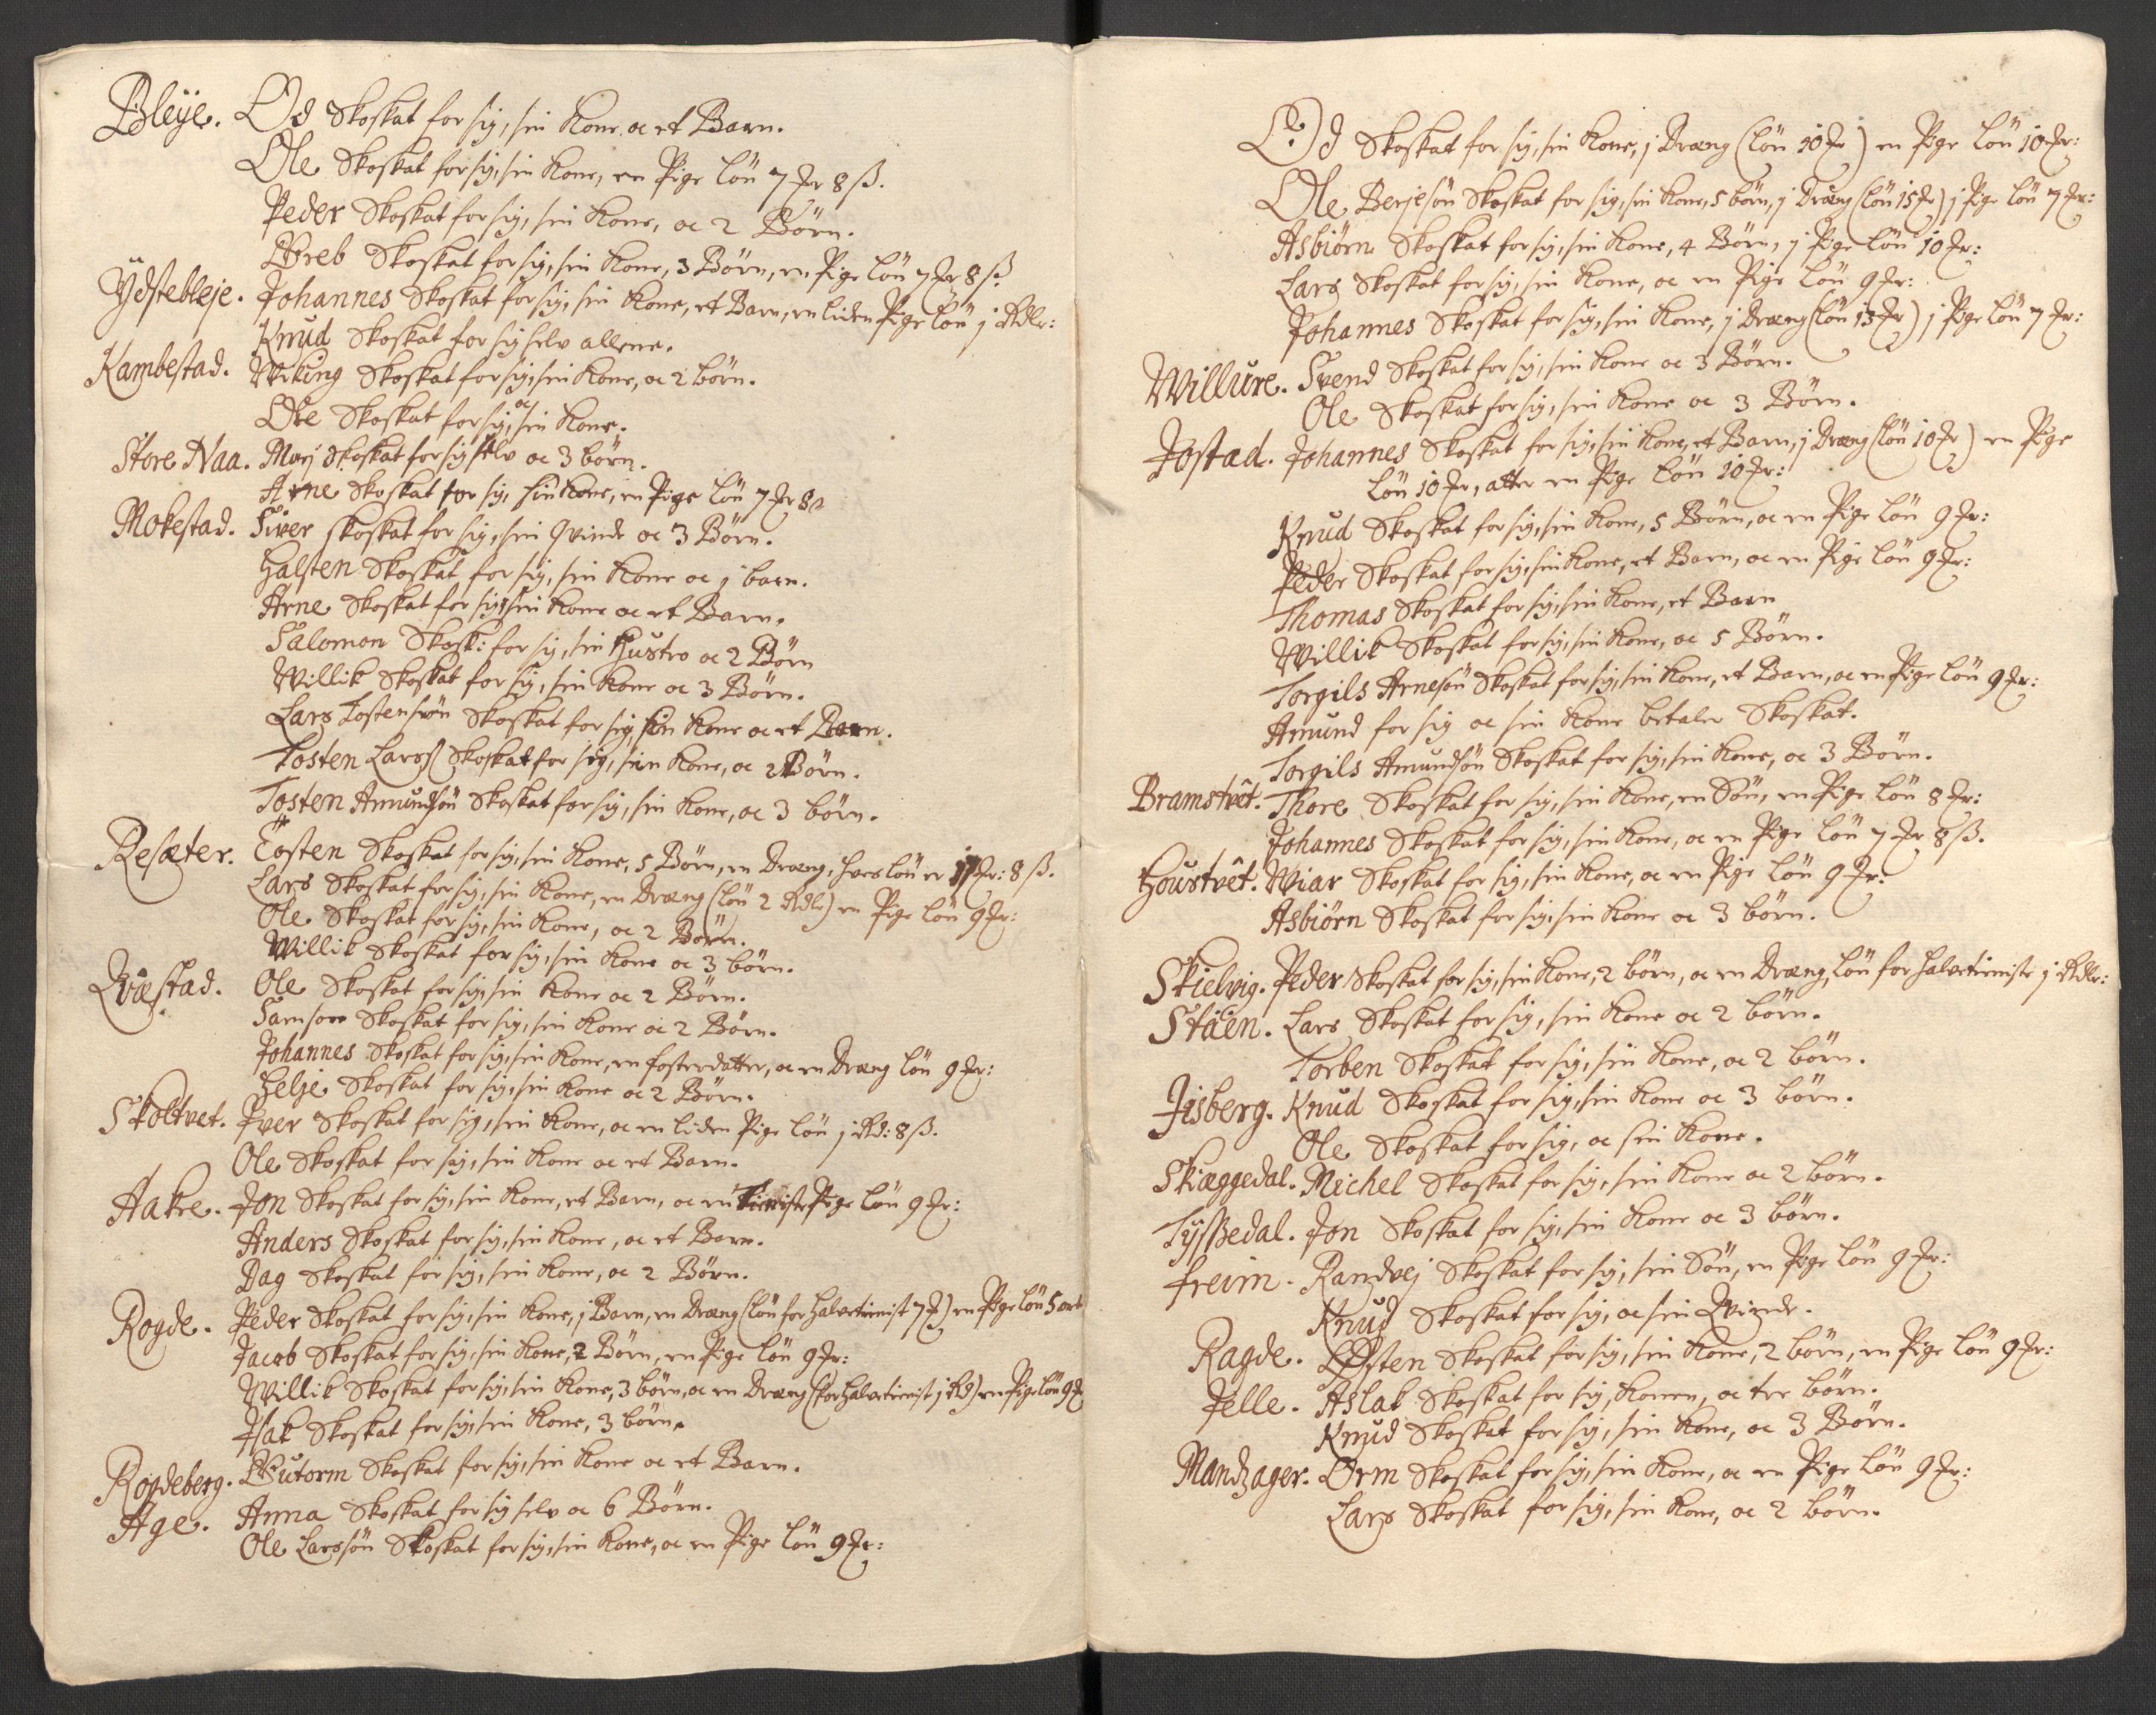 Bleÿe. Od Skoskat for sig, sin Kone oc et Barn.
Ole Skoskat for sig, sin Kone, en Pige Lön 7 Fr 8 ß.
Peder Skoskat for sig, sin Kone, oc 2 Börn.
Greb Skoskat for sig, sin Kone, 3 Börn, en Pige Lön 7 Fr 8 ß.
Ÿdstebleje. Johannes Skoskat for sig, sin Kone, et Barn, en liden Pige Lön j Rdlr:
Knud Skoskat for sig selv allene.
Kambestad. Wiking Skoskat for sig, sin Kone, oc 2 börn.
Ole Skoskat for sig, oc sin Kone.
Store Naa. Marj Skoskat for sig selv oc 3 börn.
Arne Skoskat for sig, sin Kone, en Pige Lön 7 Fr 8 ß
Mokestad. Siver skoskat for sig, sin Qvinde oc 3 Börn.
Halsten Skoskat for sig, sin Kone oc j barn.
Arne Skoskat for sig, sin Kone oc et Barn.
Salomon Skosk: for sig, sin Hustro oc 2 Börn
Willik Skoskat for sig, sin Kone oc 3 Börn.
Lars Tostensön Skoskat for sig, sin Kone oc et Barn.
Tosten Larsß Skoskat for sig, sin Kone, oc 2 Börn.
Tosten Amundsön Skoskat for sig, sin Kone, oc 3 börn.
Resæter. Eösten Skoskat for sig, sin Kone, 5 Börn, en Dræng, hves Lön er 11 Fr: 8 ß.
Lars Skoskat for sig, sin Kone, en Dræng (Lön 2 Rdlr) en Pige Lön 9 Fr:
Ole Skoskat for sig, sin Kone, oc 2 Börn.
Willik Skoskat for sig, sin Kone oc 3 börn.
Qvæstad. Ole Skoskat for sig, sin Kone oc 2 Börn.
Samson Skoskat for sig, sin Kone oc 2 Börn.
Johannes Skoskat for sig, sin Kone, en fosterdatter, oc en Dræng Lön 9 Fr:
Helje Skoskat for sig, sin Kone oc 2 Börn.
Skoltvet. Iver Skoskat for sig, sin Kone, oc en liden Pige Lön j Rd: 8 ß.
Ole Skoskat for sig, sin Kone oc et Barn.
Aakre. Jon Skoskat for sig, sin Kone, et Barn, oc en Tieniste Pige Lön 9 Fr:
Anders Skoskat for sig, sin Kone, oc et Barn.
Dag Skoskat for sig, sin Kone, oc 2 Börn.
Rogde. Peder Skoskat for sig, sin Kone, j Barn, en Dræng (Lön for halvetienist 7 Fr) en Pige Lön 5 ort
Jacob Skoskat for sig, sin Kone, 2 Börn, en Pige Lön 9 Fr:
Willik Skoskat for sig, sin Kone, 3 börn, oc en Dræng (for halvetienist j Rd) en Pige Lön 9 Fr
Isak Skoskat for sig, sin Kone, 3 börn.
Rogdeberg. Gutorm Skoskat for sig, sin Kone oc et Barn.
Age. Anna Skoskat for sig selv oc 6 Börn.
Ole Larssön Skoskat for sig, sin Kone, oc en Pige Lön 9 Fr:
Od Skoskat for sig, sin Kone, j Dræng (Lön 10 Fr) en Pige Lön 10 Fr:
Ole Berjesön Skoskat for sig, sin Kone, 5 börn, j Dræng (Lön 15 Fr) j Pige Lön 7 Fr:
Asbiörn Skoskat for sig, sin Kone, 4 Börn, j Pige Lön 10 Fr:
Lars Skoskat for sig, sin Kone, oc en Pige Lön 9 Fr:
Johannes Skoskat for sig, sin Kone, j Dræng (Lön 13 Fr) j Pige Lön 7 Fr:
Willure. Svend Skoskat for sig, sin Kone oc 3 Börn.
Ole Skoskat for sig, sin Kone oc 3 Börn.
Jostad. Johannes Skoskat for sig, sin Kone, et Barn, j Dreng (Lön 10 Fr) en Pige
Lön 10 Fr, atter en Pige Lön 10 Fr:
Knud Skoskat for sig, sin Kone, 5 Börn, oc en Pige Lön 9 Fr:
Peder Skoskat for sig, sin Kone, et Barn, oc en Pige Lön 9 Fr:
Thomas Skoskat for sig, sin Kone, et Barn
Willik Skoskat for sig, sin Kone, oc 5 Börn.
Torgils Arnesön Skoskat for sig, sin Kone, et Barn, oc en Pige Lön 9 Fr:
Amund for sig oc sin Kone betaler Skoskat.
Torgils Amundsön Skoskat for sig, sin Kone, oc 3 Börn.
Bramstvêt. Thore Skoskat for sig, sin Kone, en Sön, en Pige Lön 8 Fr:
Johannes Skoskat for sig, sin Kone, oc en Pige Lön 7 Fr 8 ß.
Houstvêt. Wiar Skoskat for sig, sin Kone, oc en Pige Lön 9 Fr:
Asbiörn Skoskat for sig, sin Kone oc 3 börn.
Skielvig. Peder Skoskat for sig, sin Kone, 2 börn, oc en Dræng, Lön for halvetieniste j Rdlr:
Stäen. Lars Skoskat for sig, sin Kone oc 2 börn.
Torben Skoskat for sig, sin Kone, oc 2 börn.
Jisberg. Knud Skoskat for sig, sin Kone oc 3 börn.
Ole Skoskat for sig, oc sin Kone.
Skiæggedal. Michel Skoskat for sig, sin Kone oc 2 börn.
Tÿssedal. Jon Skoskat for sig, sin Kone oc 3 börn.
freim. Randvej Skoskat for sig, sin Sön, en Pige Lön 9 Fr:
Knud Skoskat for sig, oc sin Qvinde.
Ragde. Östen Skoskat for sig, sin Kone, 2 börn, en Pige Lön 9 Fr:
Jelle. Aslak Skoskat for sig, Konen, oc tre börn.
Knud Skoskat for sig, sin Kone, oc 3 Börn.
Mandzager. Orm Skoskat for sig, sin Kone, oc en Pige Lön 9 Fr:
Lars Skoskat for sig, sin Kone, oc 2 börn.